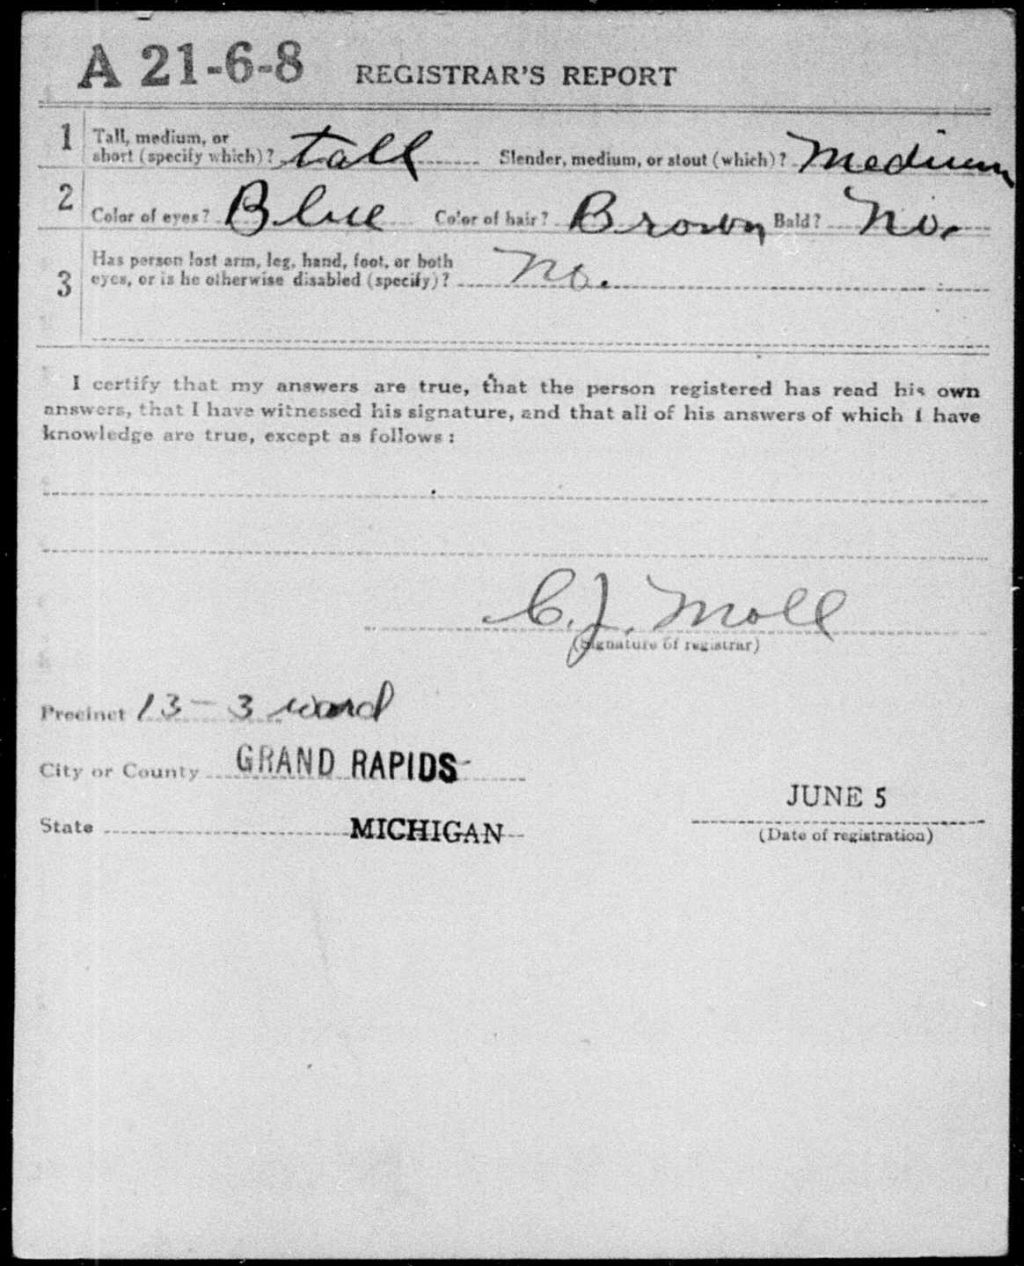 A 21-6-8 REGISTRAR'S REPORT
1 Tall, medium, or
short (specify which)? tall Slender, medium, or stout (which)? Medium
2 Color of eyes? Blue Color of hair? Brown Bald? No.
3 Has person lost arm, leg, hand, foot, or both
eyes, or is he otherwise disabled (specify)? No.
I certify that my answers are true, that the person registered has read his own
answers, that I have witnessed his signature, and that all of his answers of which I have
knowledge are true, except as follows:
C. J. Moll
(Signature of registrar)
Precinct 13 - 3 ward
City or County GRAND RAPIDS
JUNE 5
State MICHIGAN
(Date of registration)